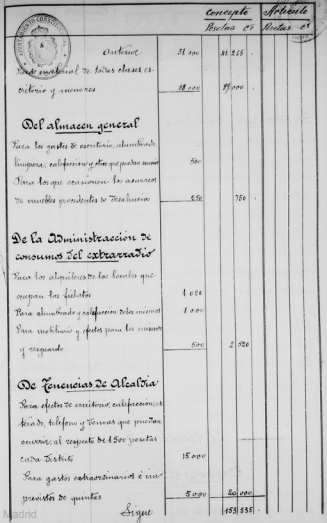 Concepto Artículo
Pesetas Cs Pesetas Cs
Anterior 31 000 41 265
material de todas clases, es-
critorio y menores 18 000 89 000
Del almacén general
Para los gastos de escritorio, alumbrado,
limpieza, calefacción y otros que puedan 500
Para los que ocasionen los acarreos
de muebles procedentes de desahucios 250 750
De la Administración de
consumos del extrarradio
Para los alquileres de los locales que
ocupan los fielatos 1 020
Para alumbrado y calefacción de los mismos 1 000
Para mobiliario y efectos para los mismos
y resguardo 500 2 520
De Tenencias de Alcaldía
Para efectos de escritorio, calefacción, es-
terado, teléfono y demás que puedan
ocurrir, al respecto de 1500 pesetas
cada distrito 15 000
Para gastos extraordinarios é im-
previstos de quintas 5 000 20 000
Sigue 153 535
Madrid